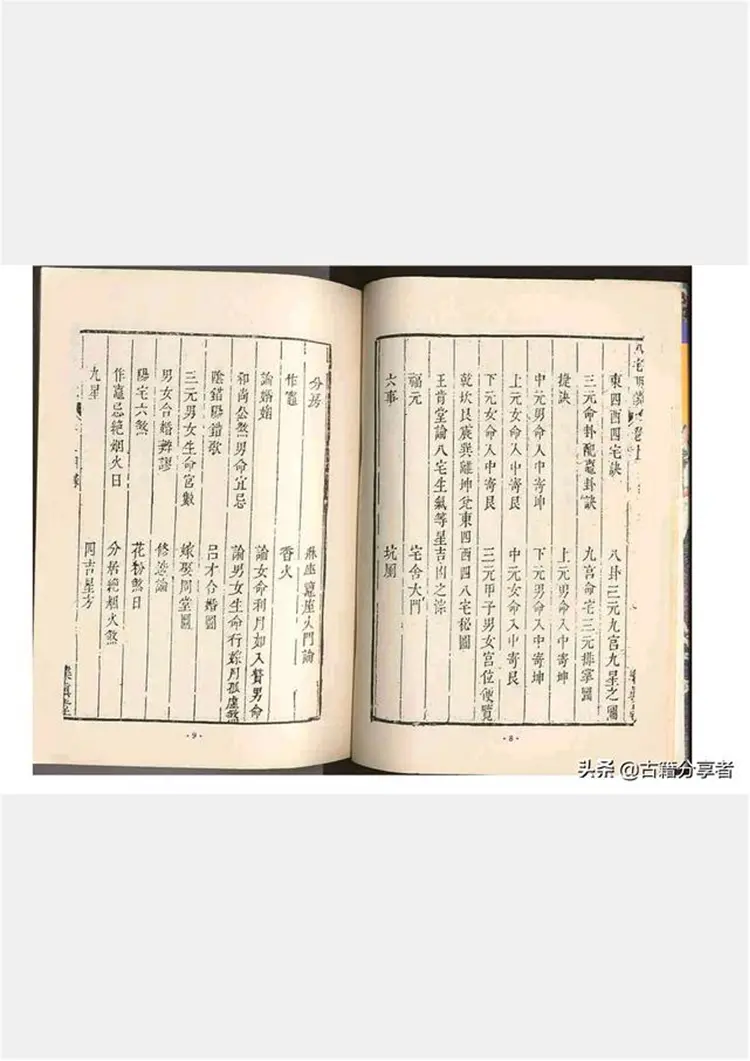 東四西四宅訣 八卦三元九宮九星之圖
三元命卦配竈卦訣 九宮命宅三元排掌圖
捷訣 上元男命入中寄坤
中元男命入中寄坤 下元男命入中寄坤
上元女命入中寄艮 中元女命入中寄艮
下元女命入中寄艮 三元甲子男女宮位便覽
乾坎艮震巽離坤兌東四西四八宅秘圖
王肯堂論八宅生氣等星吉凶之淙
福元 宅舍大門
六事 坑厠
-8-
分房 牀座竈座火門論
作竈 香火
論婚姻 論女命利月如入贅男命
和尚公煞男命宜忌 論男女生命行嫁月孤虛煞
陰錯陽錯歌 呂才合婚圖
三元男女生命宮數 嫁娶周堂圖
男女合婚辨謬 修造論
陽宅六煞 花粉煞日
作竈忌絕烟火日 分居絕烟火煞
九星 四吉星方
-9-
头条 @古籍分享者